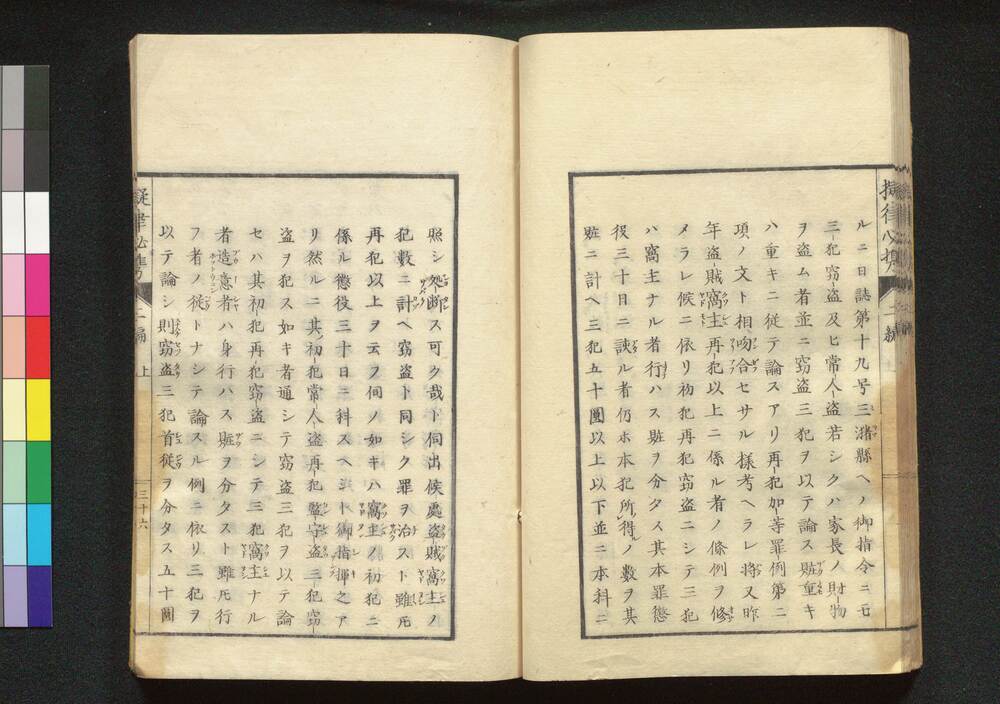 ルニ日誌第十九号三潴縣ヘノ御指令ニモ
三犯窃盗及ヒ常人盗若シクハ家長ノ財物
ヲ盗ム者並ニ窃盗三犯ヲ以テ論ス賍重キ
ハ重キニ従テ論スアリ再犯加等罪例第二
項ノ文ト相吻合セサル様考ヘラレ将又昨
年盗賊窩主再犯以上ニ係ル者ノ條例ヲ修
メラレ候ニ依リ初犯再犯窃盗ニシテ三犯
ハ窩主ナル者行ハス賍ヲ分タス其本罪懲
役三十日ニ該ル者仍ホ本犯所得ノ數ヲ其
賍ニ計ヘ三犯五十圓以上以下並ニ本科ニ
照シ処断ス可ク哉ト伺出候處盗賊窩主ノ
犯數ニ計ヘ窃盗ト同シク罪ヲ治スト雖𪜈
再犯以上ヲ云フ伺ノ如キハ窩主ノ初犯ニ
係ル懲役三十日ニ科スヘシト御指揮之ア
リ然ルニ其初犯常人盗再犯監守盗三犯窃
盗ヲ犯ス如キ者通シテ窃盗三犯ヲ以テ論
セハ其初犯再犯窃盗ニシテ三犯窩主ナル
者造意者ハ身行ハス賍ヲ分タスト雖𪜈行
フ者ノ従トナシテ論スルノ例ニ依リ三犯ヲ
以テ論シ則窃盗三犯首従ヲ分タス五十圓
二編
上
三十六